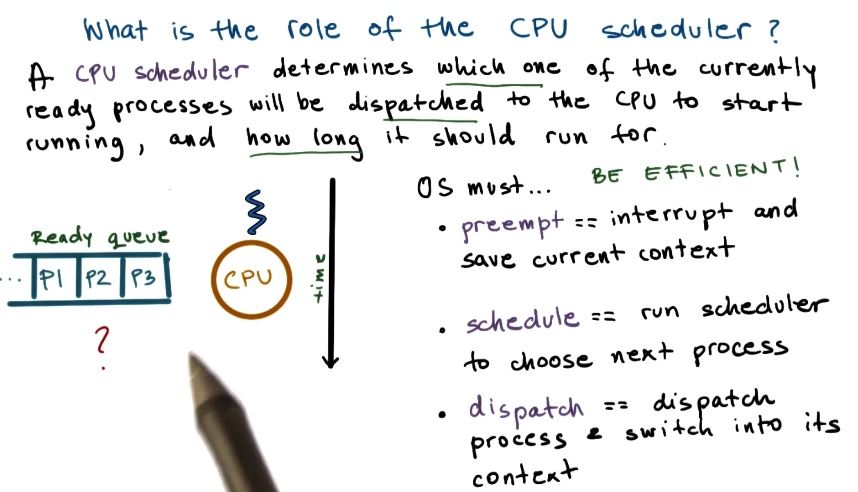 What is the role of the CPU scheduler?
A CPU scheduler determines which one of the currently
ready processes will be dispatched to the CPU to start
running, and how long it should run for.
OS must... BE EFFICIENT!
• preempt == interrupt and
save current context
• schedule == run scheduler
to choose next process
• dispatch == dispatch
process & switch into its
context
Ready queue
... P1 P2 P3
?
CPU
time